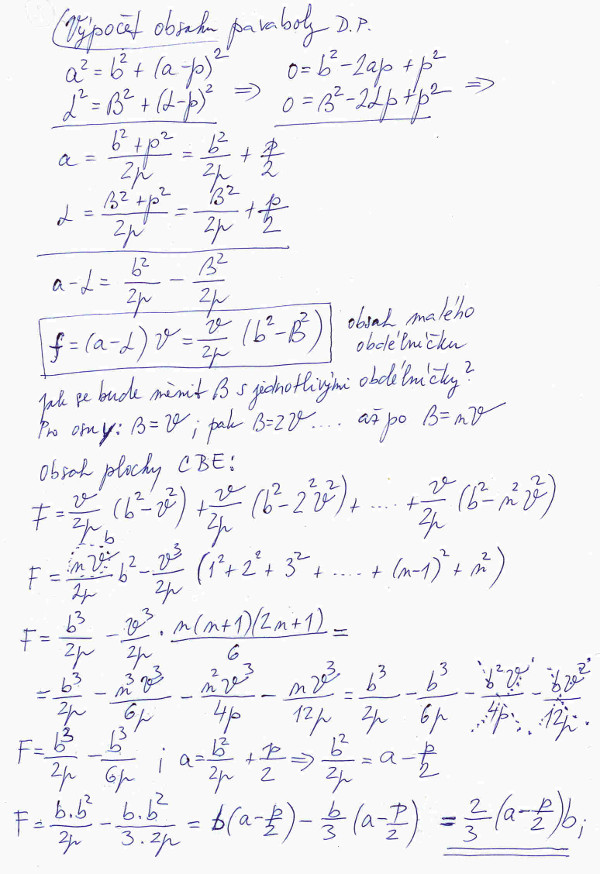 Výpočet obsahu paraboly D.P.
a² = b² + (a-p)² ⇒ 0 = b² - 2ap + p² ⇒
α² = β² + (α-p)² 0 = β² - 2αp + p²
a = (b² + p²)/2p = b²/2p + p/2
α = (β² + p²)/2p = β²/2p + p/2
a - α = b²/2p - β²/2p
f = (a-α) v = v/2p (b² - β²) obsah malého
obdélníčku
jak se bude měnit β s jednotlivými obdélníčky?
Pro osu y: β = v ; pak β = 2v .... až po β = nv
Obsah plochy CBE:
F = v/2p (b² - v²) + v/2p (b² - 2²v²) + .... + v/2p (b² - n²v²)
b
F = nv/2p b² - v³/2p (1² + 2² + 3² + .... + (n-1)² + n²)
F = b³/2p - v³/2p · n(n+1)(2n+1)/6 =
= b³/2p - n³v³/6p - n²v³/4p - nv³/12p = b³/2p - b³/6p - b²v/4p - bv²/12p .
F = b³/2p - b³/6p ; a = b²/2p + p/2 ⇒ b²/2p = a - p/2
F = b.b²/2p - b.b²/3.2p = b(a - p/2) - b/3 (a - p/2) = 2/3 (a - p/2) b ;